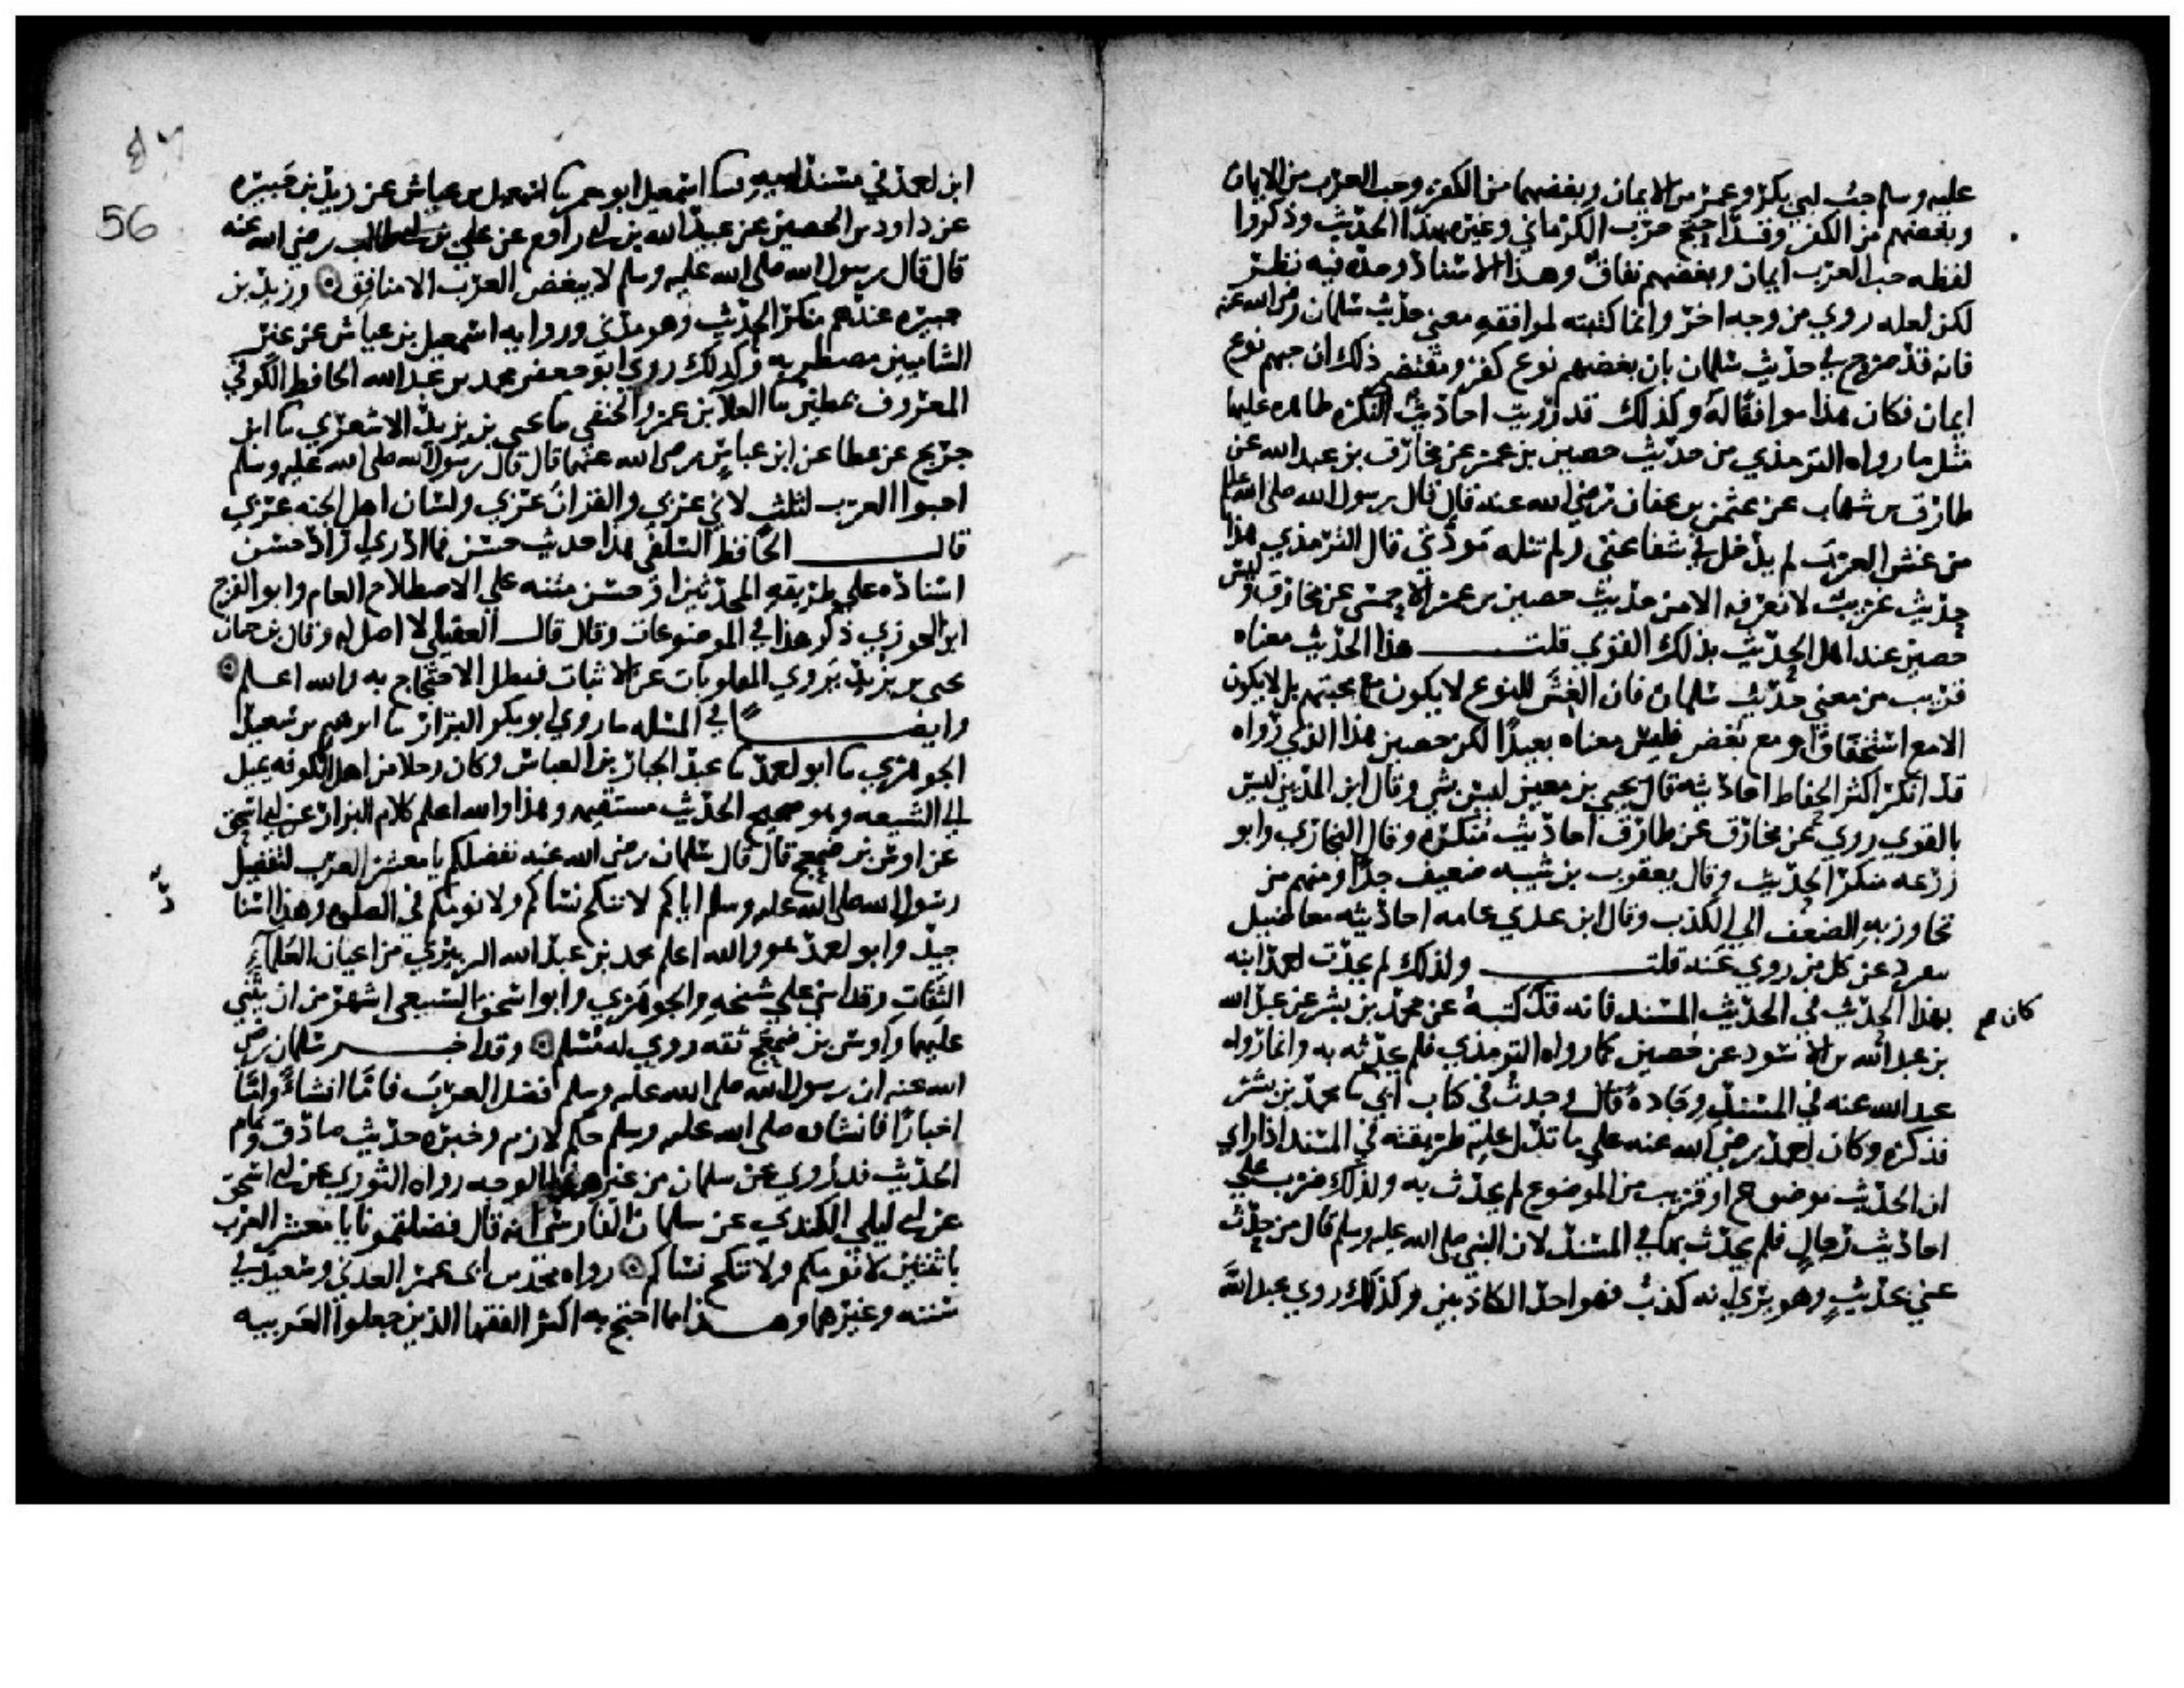 عليه وسلم حب ابي بكر وعمر من الايمان وبغضهما من الكفر وحب العرب من الايمان
وبغضهم من الكفر وقد احتج حرب الكرماني وغيره بهذا الحديث وذكروا
لفظه حب العرب ايمان وبغضهم نفاق وهذا الاسناد وحده فيه نظر
لكن لعله روي من وجه اخر وانما كتبته لموافقه معنى حديث سلمان رضي الله عنه
فانه قد صرح في حديث سلمان بان بغضهم نوع كفر ومقتضى ذلك ان حبهم نوع
ايمان فكان هذا موافقا له وكذلك قد رويت احاديث النكره ظاهره عليها
مثل ما رواه الترمذي من حديث حصين بن عمر عن مخارق بن عبد الله عن
طارق بن شهاب عن عثمن بن عفان رضي الله عنه قال قال رسول الله صلى الله عليه
من غش العرب لم يدخل في شفاعتي ولم تنله مودتي قال الترمذي هذا
حديث غريب لا نعرفه الا من حديث حصين بن عمر الاحمسي عن مخارق وليس
حصين عند اهل الحديث بذلك القوي قلت هذا الحديث معناه
قريب من معنى حديث سلمان فان الغش للنوع لا يكون مع محبتهم بل لا يكون
الا مع استخفاف او مع بغض فليس معناه بعيدا لكن حصين هذا الذي رواه
قد انكر اكثر الحفاظ احاديثه قال يحيى بن معين ليس بشي وقال ابن المديني ليس
بالقوي روي عن مخارق عن طارق احاديث منكره وقال البخاري وابو
زرعه منكر الحديث وقال يعقوب بن شيبه ضعيف جدا ومنهم من
تجاوز به الضعف الى الكذب وقال ابن عدي عامه احاديثه معاضيل
ينفرد عن كل من روي عنه قلت ولذلك لم يحدث احمد ابنه
بهذا الحديث في الحديث المسند فانه قد كتبه عن محمد بن بشر عن عبد الله
كان
بن عبد الله بن الاسود عن حصين كما رواه الترمذي فلم يحدثه به وانما رواه
عبد الله عنه في المسند وجاده قال وجدت في كتاب ابي ثنا محمد بن بشر
فذكره وكان احمد رضي الله عنه على ما تدل عليه طريقته في المسند اذا راي
ان الحديث موضوع او قريب من الموضوع لم يحدث به ولذلك ضرب على
احاديث رجال فلم يحدث بها في المسند لان النبي صلى الله عليه وسلم قال من حدث
عني بحديث وهو يرى انه كذب فهو احد الكاذبين وكذلك روي عبد الله
56
ابن احمد في مسند ابيه ثنا اسمعيل ابو معمر ثنا اسمعيل بن عياش عن زيد بن جبيره
عن داود بن الحصين عن عبيد الله بن ابي رافع عن علي بن ابي طالب رضي الله عنه
قال قال رسول الله صلى الله عليه وسلم لا يبغض العرب الا منافق وزيد بن
جبيره عندهم منكر الحديث وهو مدني وروايه اسمعيل بن عياش عن غير
الشاميين مضطربه وكذلك روي ابو جعفر محمد بن عبد الله الحافظ الكوفي
المعروف بمطين ثنا العلا بن عمرو الحنفي ثنا يحيى بن يزيد الاشعري ثنا ابن
جريج عن عطا عن ابن عباس رضي الله عنهما قال قال رسول الله صلى الله عليه وسلم
احبوا العرب لثلث لاني عربي والقران عربي ولسان اهل الجنه عربي
قال الحافظ السلفي هذا حديث حسن فما ادري اراد حسن
اسناده على طريقه المحدثين او حسن متنه على الاصطلاح العام وابو الفرج
ابن الجوزي ذكر هذا في الموضوعات وقال قال العقيلي لا اصل له وقال بن حبان
يحيى بن يزيد يروي المقلوبات عن الاثبات فبطل الاحتجاج به والله اعلم
وايضا في المسله ما روي ابو بكر البزار ثنا ابرهيم بن سعيد
الجوهري ثنا ابو احمد ثنا عبد الجبار بن العباس وكان رجلا من اهل الكوفه يميل
الى الشيعه وهو صحيح الحديث مستقيمه وهذا والله اعلم كلام البزار عن ابي اسحق
عن اوس بن ضمعج قال قال سلمان رضي الله عنه نفضلكم يا معشر العرب لتفضيل
رسول الله صلى الله عليه وسلم اياكم لا ننكح نساكم ولا نومكم في الصلوه وهذا اسنا
د
جيد وابو احمد هو والله اعلم محمد بن عبد الله الزبيري من اعيان العلماء
الثقات وقد اثنى على شيخه والجوهري وابو اسحق السبيعي اشهر من ان يثني
عليهما واوس بن ضمعج ثقه روي له مسلم وقد اخبر سلمان رضي
الله عنه ان رسول الله صلى الله عليه وسلم فضل العرب فاما انشاء واما
اخبارا فانشاه صلى الله عليه وسلم حكم لازم وخبره حديث صادق وتمام
الحديث قد روي عن سلمان من غير هذا الوجه رواه الثوري عن ابي اسحق
عن ابي ليلى الكندي عن سلمان الفارسي انه قال فضلتمونا يا معشر العرب
باثنتين لا نومكم ولا ننكح نساكم رواه محمد بن ابي عمر العدني وسعيد في
سننه وغيرهما وهذا مما احتج به اكثر الفقها الذين جعلوا العربيه